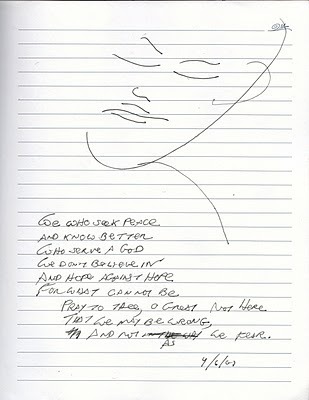 WE WHO SEEK PEACE
AND KNOW BETTER
WHO SERVE A GOD
WE DON'T BELIEVE IN
AND HOPE AGAINST HOPE
FOR WHAT CANNOT BE
PRAY TO THEE, O GREAT NOT HERE
THAT WE MAY BE WRONG,
AND NOT AS WE FEAR.